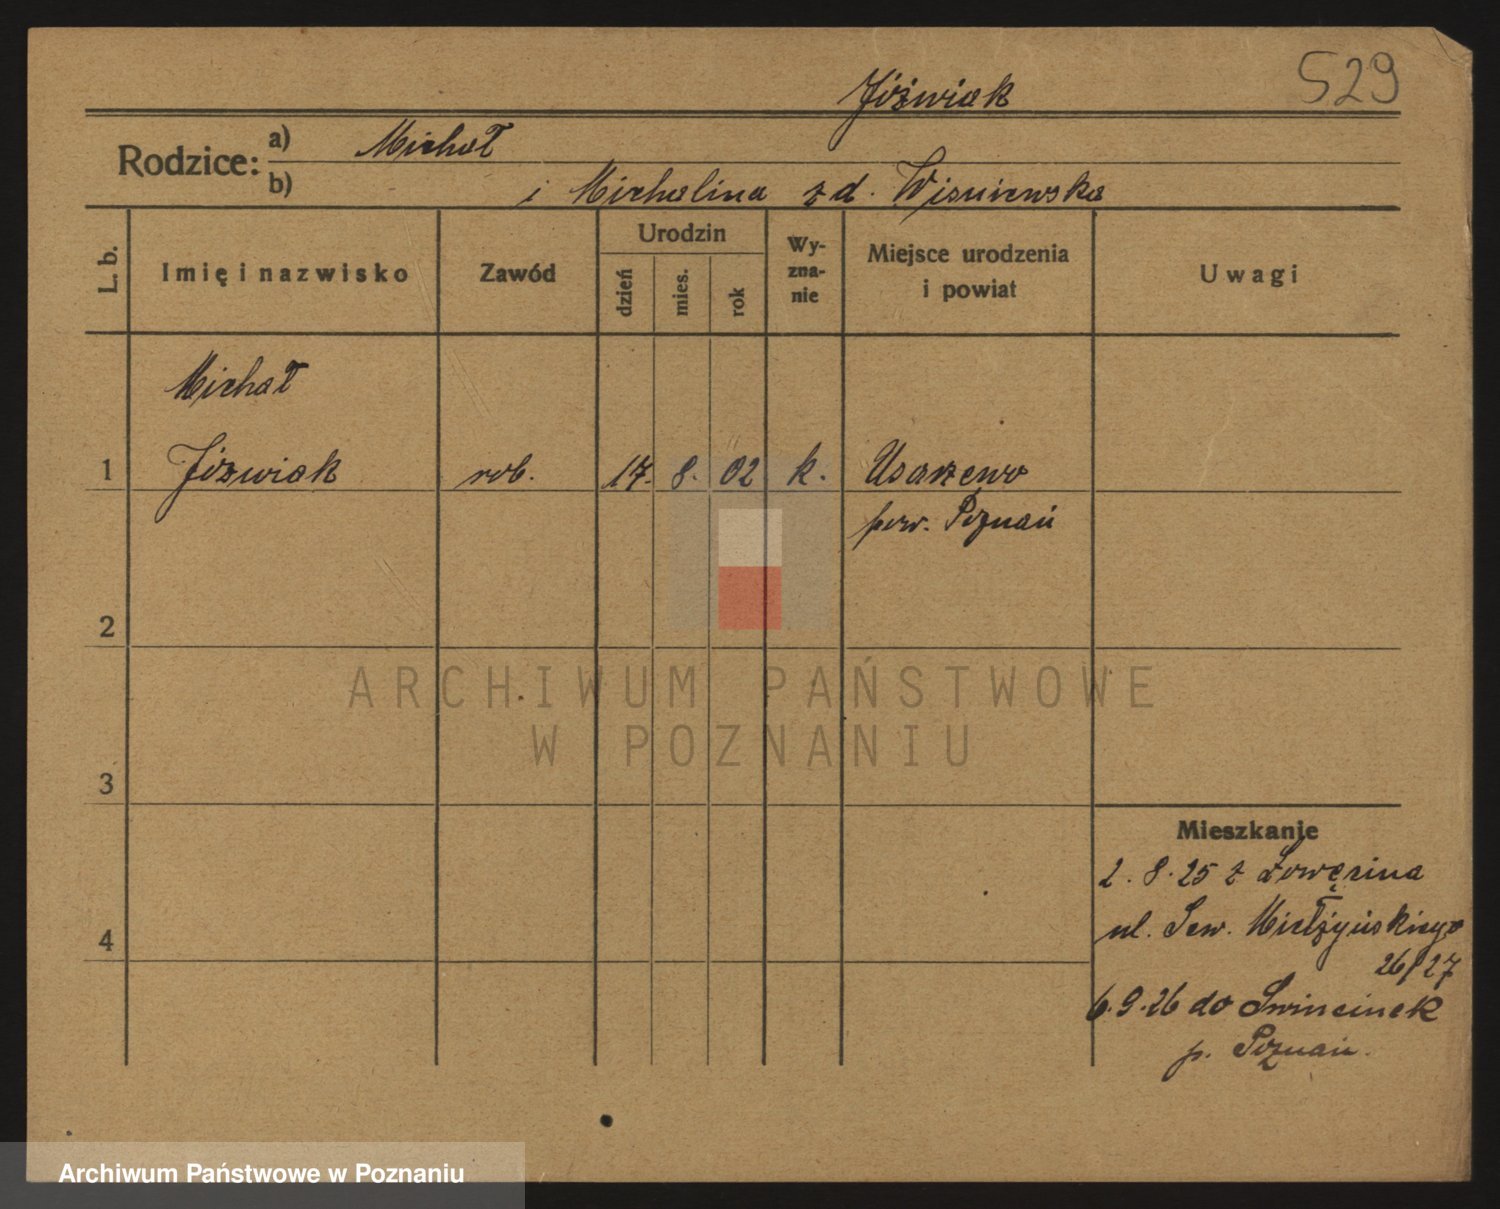 Jóźwiak
529
Rodzice:
a) Michał
b) i Michalina z d. Wisniewska
L. b.
Imię i nazwisko
Zawód
Urodzin
dzień
mies.
rok
Wy-
zna-
nie
Miejsce urodzenia
i powiat
Uwagi
Michał
1 Józwiak rob. 17. 8. 02 k. Usarzewo
pow. Poznań
2
ARCHIWUM PAŃSTWOWE
W POZNANIU
3
Mieszkanie
2. 8. 25 z Łowęcina
ul. Sew. Mielżyńskiego
4
26/27
6. 9. 26 do Swincinek
p. Poznań.
Archiwum Państwowe w Poznaniu